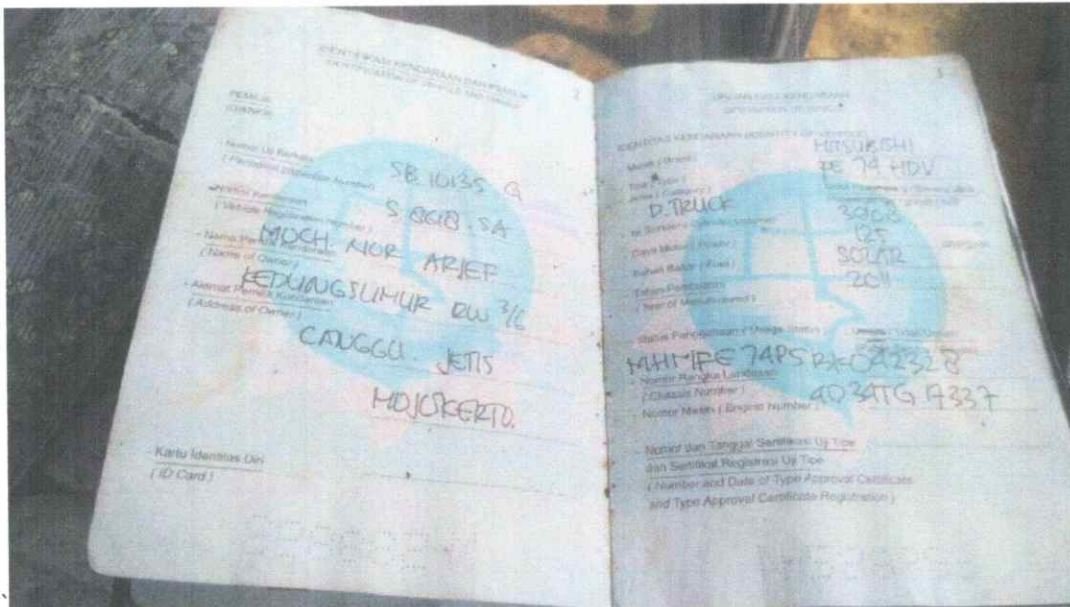 2
IDENTIFIKASI KENDARAAN DAN PEMILIK
IDENTIFICATION OF VEHICLE AND OWNER
PEMILIK
(OWNER)
- Nomor Uji Berkala
SB 10135
( Periodical Inspection Number )
- Nomor Kendaraan
S
SA
( Vehicle Registration Number )
MOCH. NOR ARIEF
- Nama Pemilik Kendaraan
( Name of Owner )
KEDUNGSUMUR RW 3/6
- Alamat Pemilik Kendaraan
( Address of Owner )
CANGGU. JETIS
MOJOKERTO.
- Kartu Identitas Diri
( ID Card )
3
IDENTITAS KENDARAAN (IDENTITY OF VEHICLE)
Merek ( Brand )
MITSUBISHI
Tipe ( Type )
FE 74 HDV
D. TRUCK
3908
Daya Motor ( Power )
125
Bahan Bakar ( Fuel )
SOLAR
Tahun Pembuatan
2011
( Year of Manufactured )
Status Penggunaan ( Usage Status )
- Nomor Rangka Landasan
( Chassis Number )
- Nomor Mesin ( Engine Number )
- Nomor dan Tanggal Sertifikasi Uji Tipe
dan Sertifikat Registrasi Uji Tipe
( Number and Date of Type Approval Certificate
and Type Approval Certificate Registration )